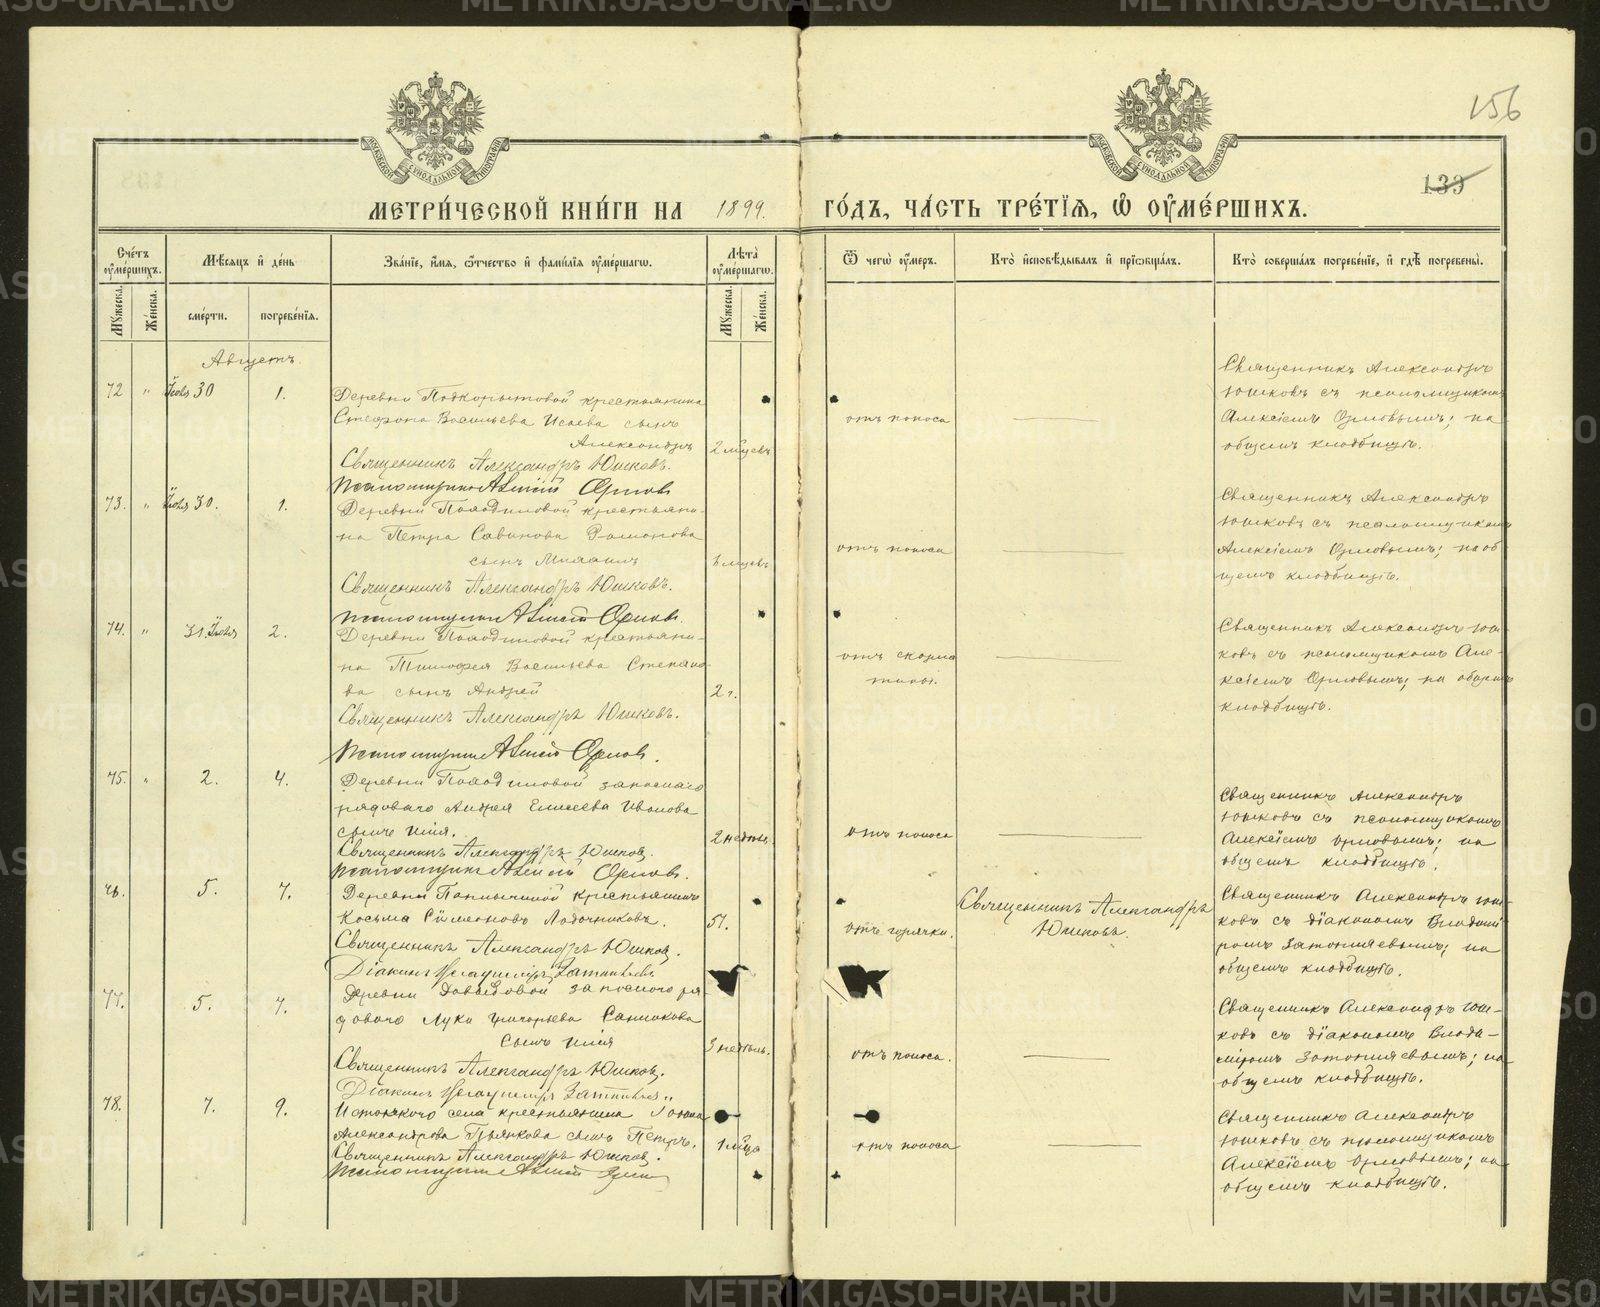 156
133
МЕТРИ́ЧЕСКОЙ КНИ́ГИ НА 1899. ГО́ДЪ, ЧА́СТЬ ТРЕ́ТІѦ, Ѡ ОУМЕ́РШИХЪ.
Сче́тъ оуме́ршихъ.
Мѣ́сяцъ и де́нь
Зва́ніе, и́мя, ѻ́тчество и фами́лія оуме́ршагѡ.
Лѣта̀ оуме́ршагѡ.
Ѿ чегѡ̀ оу́меръ.
Кто̀ исповѣ́дывалъ и прїѡбща́лъ.
Кто̀ соверша́лъ погребе́ніе, и гдѣ̀ погребены̀.
Му́жеска.
Же́нска.
сме́рти.
погребе́нія.
Му́жеска.
Же́нска.
Августъ.
72 " Іюля 30 1.
Деревни Подкорытовой крестьянина
Стефана Васильева Исаева сынъ
Александръ 2 мѣсевъ
Священникъ Александръ Юшковъ.
Псаломщикъ Алексій Орловъ
отъ поноса
Священникъ Александръ
Юшковъ съ псаломщикомъ
Алексіемъ Орловымъ; на
общемъ кладбищѣ.
73. " Іюля 30. 1.
крестьяни-
на Петра Савинова Романова
сынъ Михаилъ
Священникъ Александръ Юшковъ.
Псаломщикъ Алексій Орловъ.
отъ поноса
Священникъ Александръ
Юшковъ съ псаломщикомъ
Алексіемъ Орловымъ; на об-
щемъ кладбищѣ.
74. " 31. Іюля 2.
крестьяни-
на Тимофея Васильева Степано-
ва сынъ Андрей 2 г.
Священникъ Александръ Юшковъ.
Псаломщикъ Алексій Орловъ.
отъ скарла
тины.
Священникъ Александръ Юш-
ковъ съ псаломщикомъ Але-
ксіемъ Орловымъ; на общемъ
кладбищѣ.
75. " 2. 4.
запаснаго
рядового Андрея Елисеева Иванова
сынъ Илія. 2 недѣль.
Священникъ Александръ Юшковъ.
Псаломщикъ Алексій Орловъ.
отъ поноса
Священникъ Александръ
Юшковъ съ псаломщикомъ
Алексіемъ Орловымъ; на
общемъ кладбищѣ.
76. 5. 7.
крестьянинъ
Косьма Симеоновъ Лодочниковъ. 51.
Священникъ Александръ Юшковъ.
Діаконъ
отъ горячки.
Священникъ Александръ
Юшковъ.
Священникъ Александръ Юш-
ковъ съ діакономъ Влади́мі
ромъ на
общемъ кладбищѣ.
77. 5. 7.
Деревни Давыдовой запасного ря-
дового Луки Григорьева
сынъ Илія 3 недѣль.
Священникъ Александръ Юшковъ.
Діаконъ
отъ поноса.
Священникъ Александръ Юш-
ковъ съ діакономъ Влади-
міромъ на
общемъ кладбищѣ.
78. 7. 9.
Истокского села крестьянина
Александрова Прянкова сынъ Петръ. 1 мѣца
Священникъ Александръ Юшковъ.
Псаломщикъ Алексій
отъ поноса
Священникъ Александръ
Юшковъ съ псаломщикомъ
Алексіемъ Орловымъ; на
общемъ кладбищѣ.